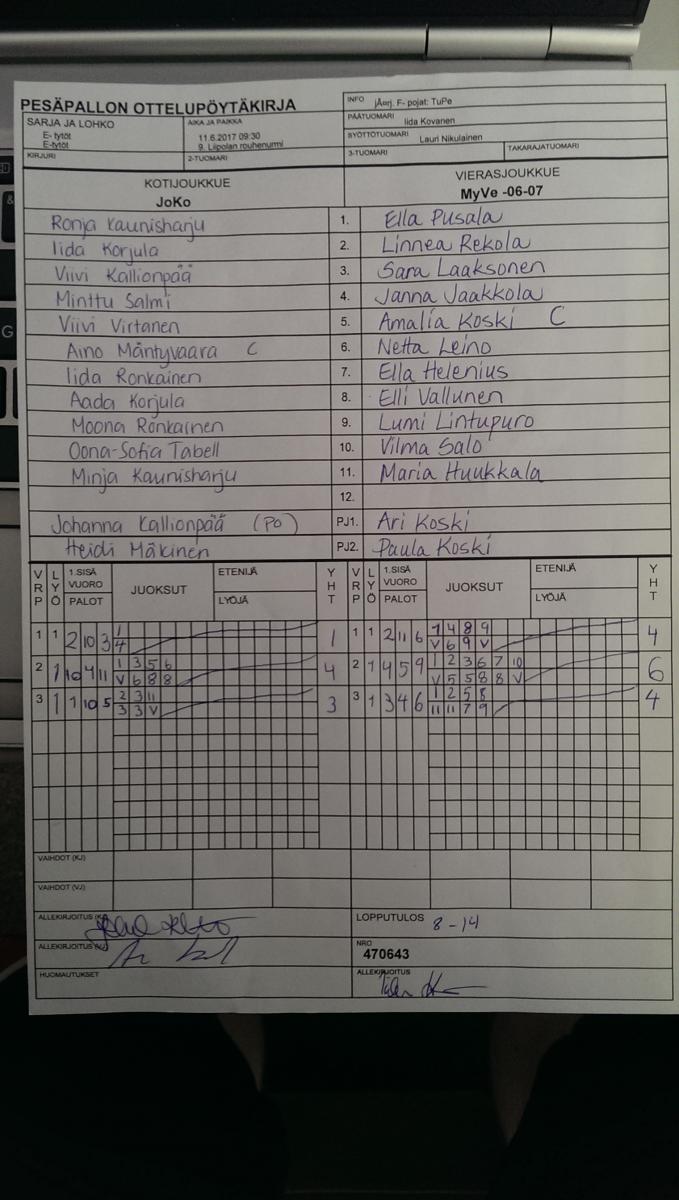 PESÄPALLON OTTELUPÖYTÄKIRJA
INFO jÄorj. F- pojat: TuPe
SARJA JA LOHKO
E- tytöt
E-tytöt
AIKA JA PAIKKA
11.6.2017 09:30
9. Liipolan rouhenurmi
PÄÄTUOMARI Iida Kovanen
SYÖTTÖTUOMARI Lauri Nikulainen
KIRJURI 2-TUOMARI 3-TUOMARI TAKARAJATUOMARI
KOTIJOUKKUE VIERASJOUKKUE
JoKo MyVe -06-07
Ronja Kaunisharju 1. Ella Pusala
Iida Korjula 2. Linnea Rekola
Viivi Kallionpää 3. Sara Laaksonen
Minttu Salmi 4. Janna Jaakkola
Viivi Virtanen 5. Amalia Koski C
Aino Mäntyvaara C 6. Netta Leino
Iida Ronkainen 7. Ella Helenius
Aada Korjula 8. Elli Vallunen
Moona Ronkainen 9. Lumi Lintupuro
Oona-Sofia Tabell 10. Vilma Salo
Minja Kaunisharju 11. Maria Huukkala
12.
Johanna Kallionpää (PO) PJ1. Ari Koski
Heidi Mäkinen PJ2. Paula Koski
VRP LYÖ 1.SISÄ VUORO PALOT JUOKSUT ETENIJÄ LYÖJÄ YHT VRP LYÖ 1.SISÄ VUORO PALOT JUOKSUT ETENIJÄ LYÖJÄ YHT
1 1 2 10 3 1 1 1 1 2 11 6 7 4 8 9 4
4 V 6 9 V
2 1 10 4 11 1 3 5 6 4 2 1 4 5 9 1 2 3 6 7 10 6
V 6 8 8 V 5 5 8 8 V
3 1 1 10 5 2 3 11 3 3 1 3 4 6 1 2 5 8 4
3 3 V 11 11 7 9
VAIHDOT (KJ)
VAIHDOT (VJ)
ALLEKIRJOITUS (KJ) LOPPUTULOS 8 - 14
ALLEKIRJOITUS (VJ) NRO
470643
HUOMAUTUKSET ALLEKIRJOITUS